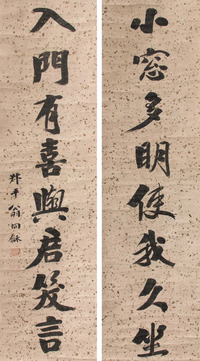 小窓多明使我久坐
入門有喜與君笑言
叔平翁同龢